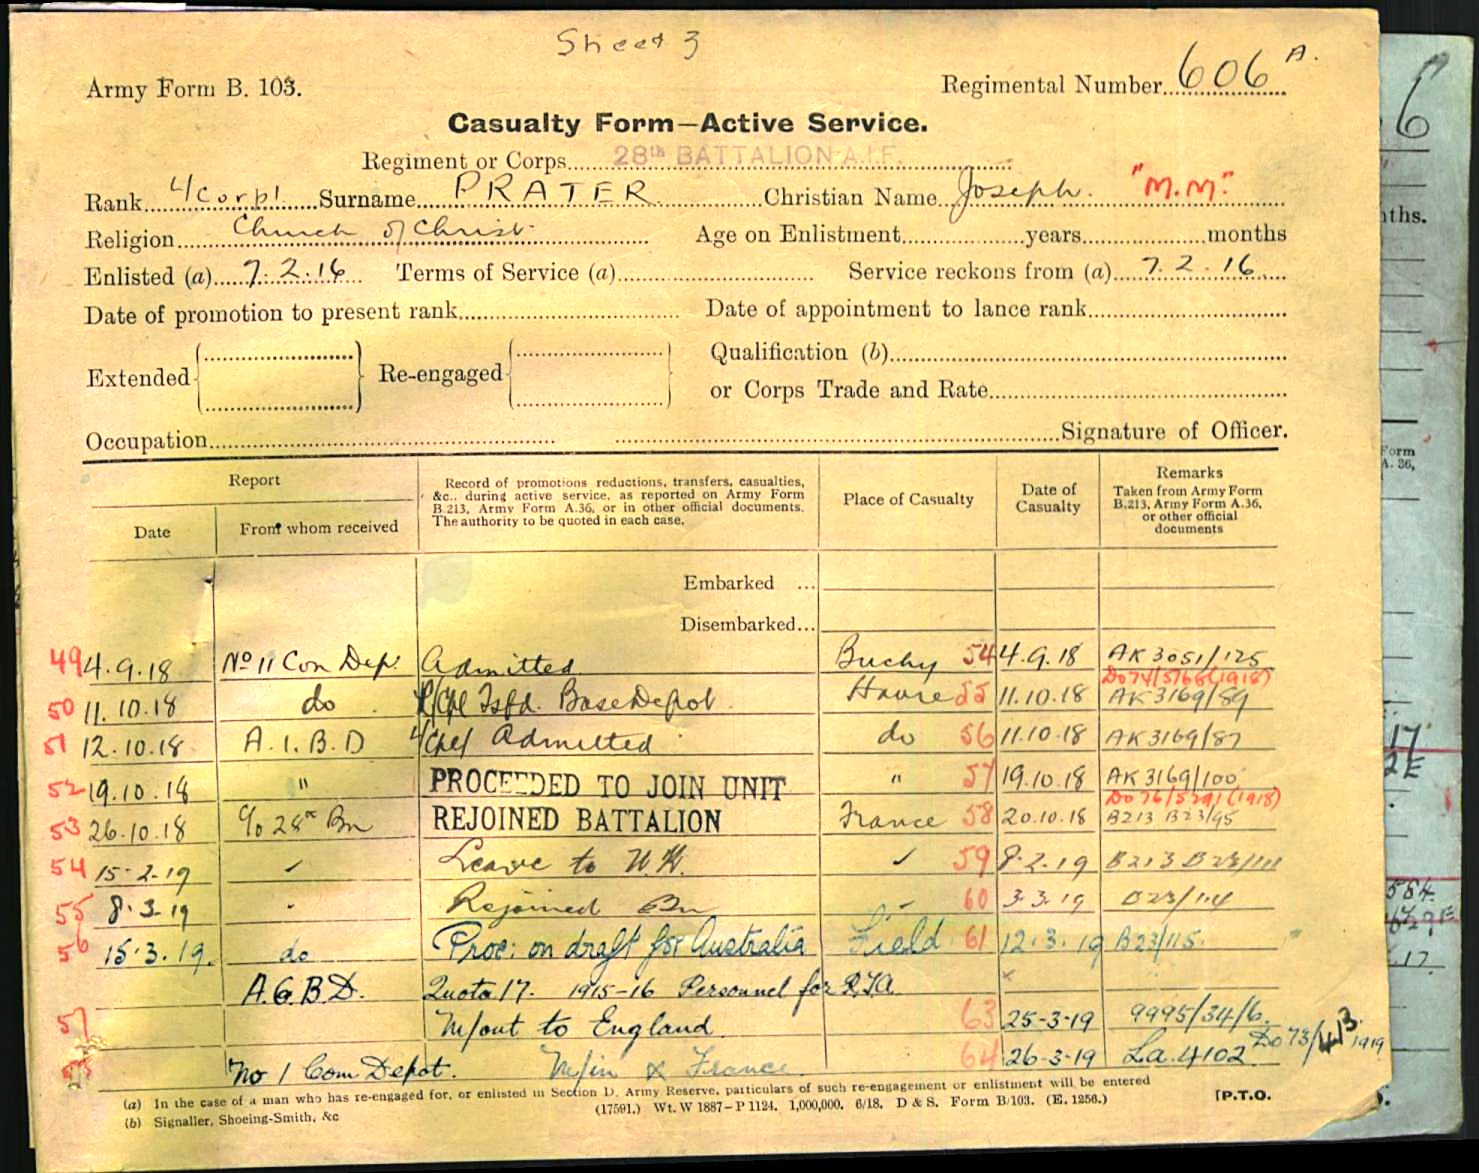 Sheet 3
Army Form B. 103.
Regimental Number 606 A.
Casualty Form—Active Service.
Regiment or Corps 28th BATTALION A.I.F.
Rank L/Corpl Surname PRATER Christian Name Joseph. "M.M."
Religion Church of Christ Age on Enlistment years months
Enlisted (a) 7.2.16 Terms of Service (a) Service reckons from (a) 7.2.16
Date of promotion to present rank Date of appointment to lance rank
Extended Re-engaged Qualification (b)
or Corps Trade and Rate
Occupation Signature of Officer.
Report Record of promotions reductions, transfers, casualties, &c., during active service, as reported on Army Form B.213, Army Form A.36, or in other official documents. The authority to be quoted in each case. Place of Casualty Date of Casualty Remarks Taken from Army Form B.213, Army Form A.36, or other official documents
Date From whom received
Embarked ...
Disembarked...
49 4.9.18 No 11 Con Dep. Admitted Buchy 54 4.9.18 AK3051/125
Do 74/5766 (1918)
50 11.10.18 do L/Cpl Tsfd. Base Depot Havre 55 11.10.18 AK3169/89
51 12.10.18 A.I.B.D L/Cpl Admitted do 56 11.10.18 AK3169/87
52 19.10.18 " PROCEEDED TO JOIN UNIT " 57 19.10.18 AK3169/100
Do 76/5791 (1918)
53 26.10.18 C/o 28th Bn REJOINED BATTALION France 58 20.10.18 B213 B23/95
54 15-2-19 Leave to UK. 59 8-2-19 B213 B23/111
55 8.3.19 Rejoined Bn 60 3.3.19 B23/114
56 15.3.19. do Proc: on draft for Australia Field 61 12.3.19 B23/115.
A.G.B.D. Quota 17. 1915-16 Personnel for RTA
57 M/out to England 63 25-3-19 9995/34/6.
No 1 Com Depot. M/in ex France 64 26-3-19 La. 4102 Do 73/413 1919
(a) In the case of a man who has re-engaged for, or enlisted in Section D. Army Reserve, particulars of such re-engagement or enlistment will be entered
(b) Signaller, Shoeing-Smith, &c
(17591.) Wt. W 1887—P 1124. 1,000,000. 6/18. D & S. Form B/103. (E. 1256.)
[P.T.O.
6
nths.
Form
A. 36,